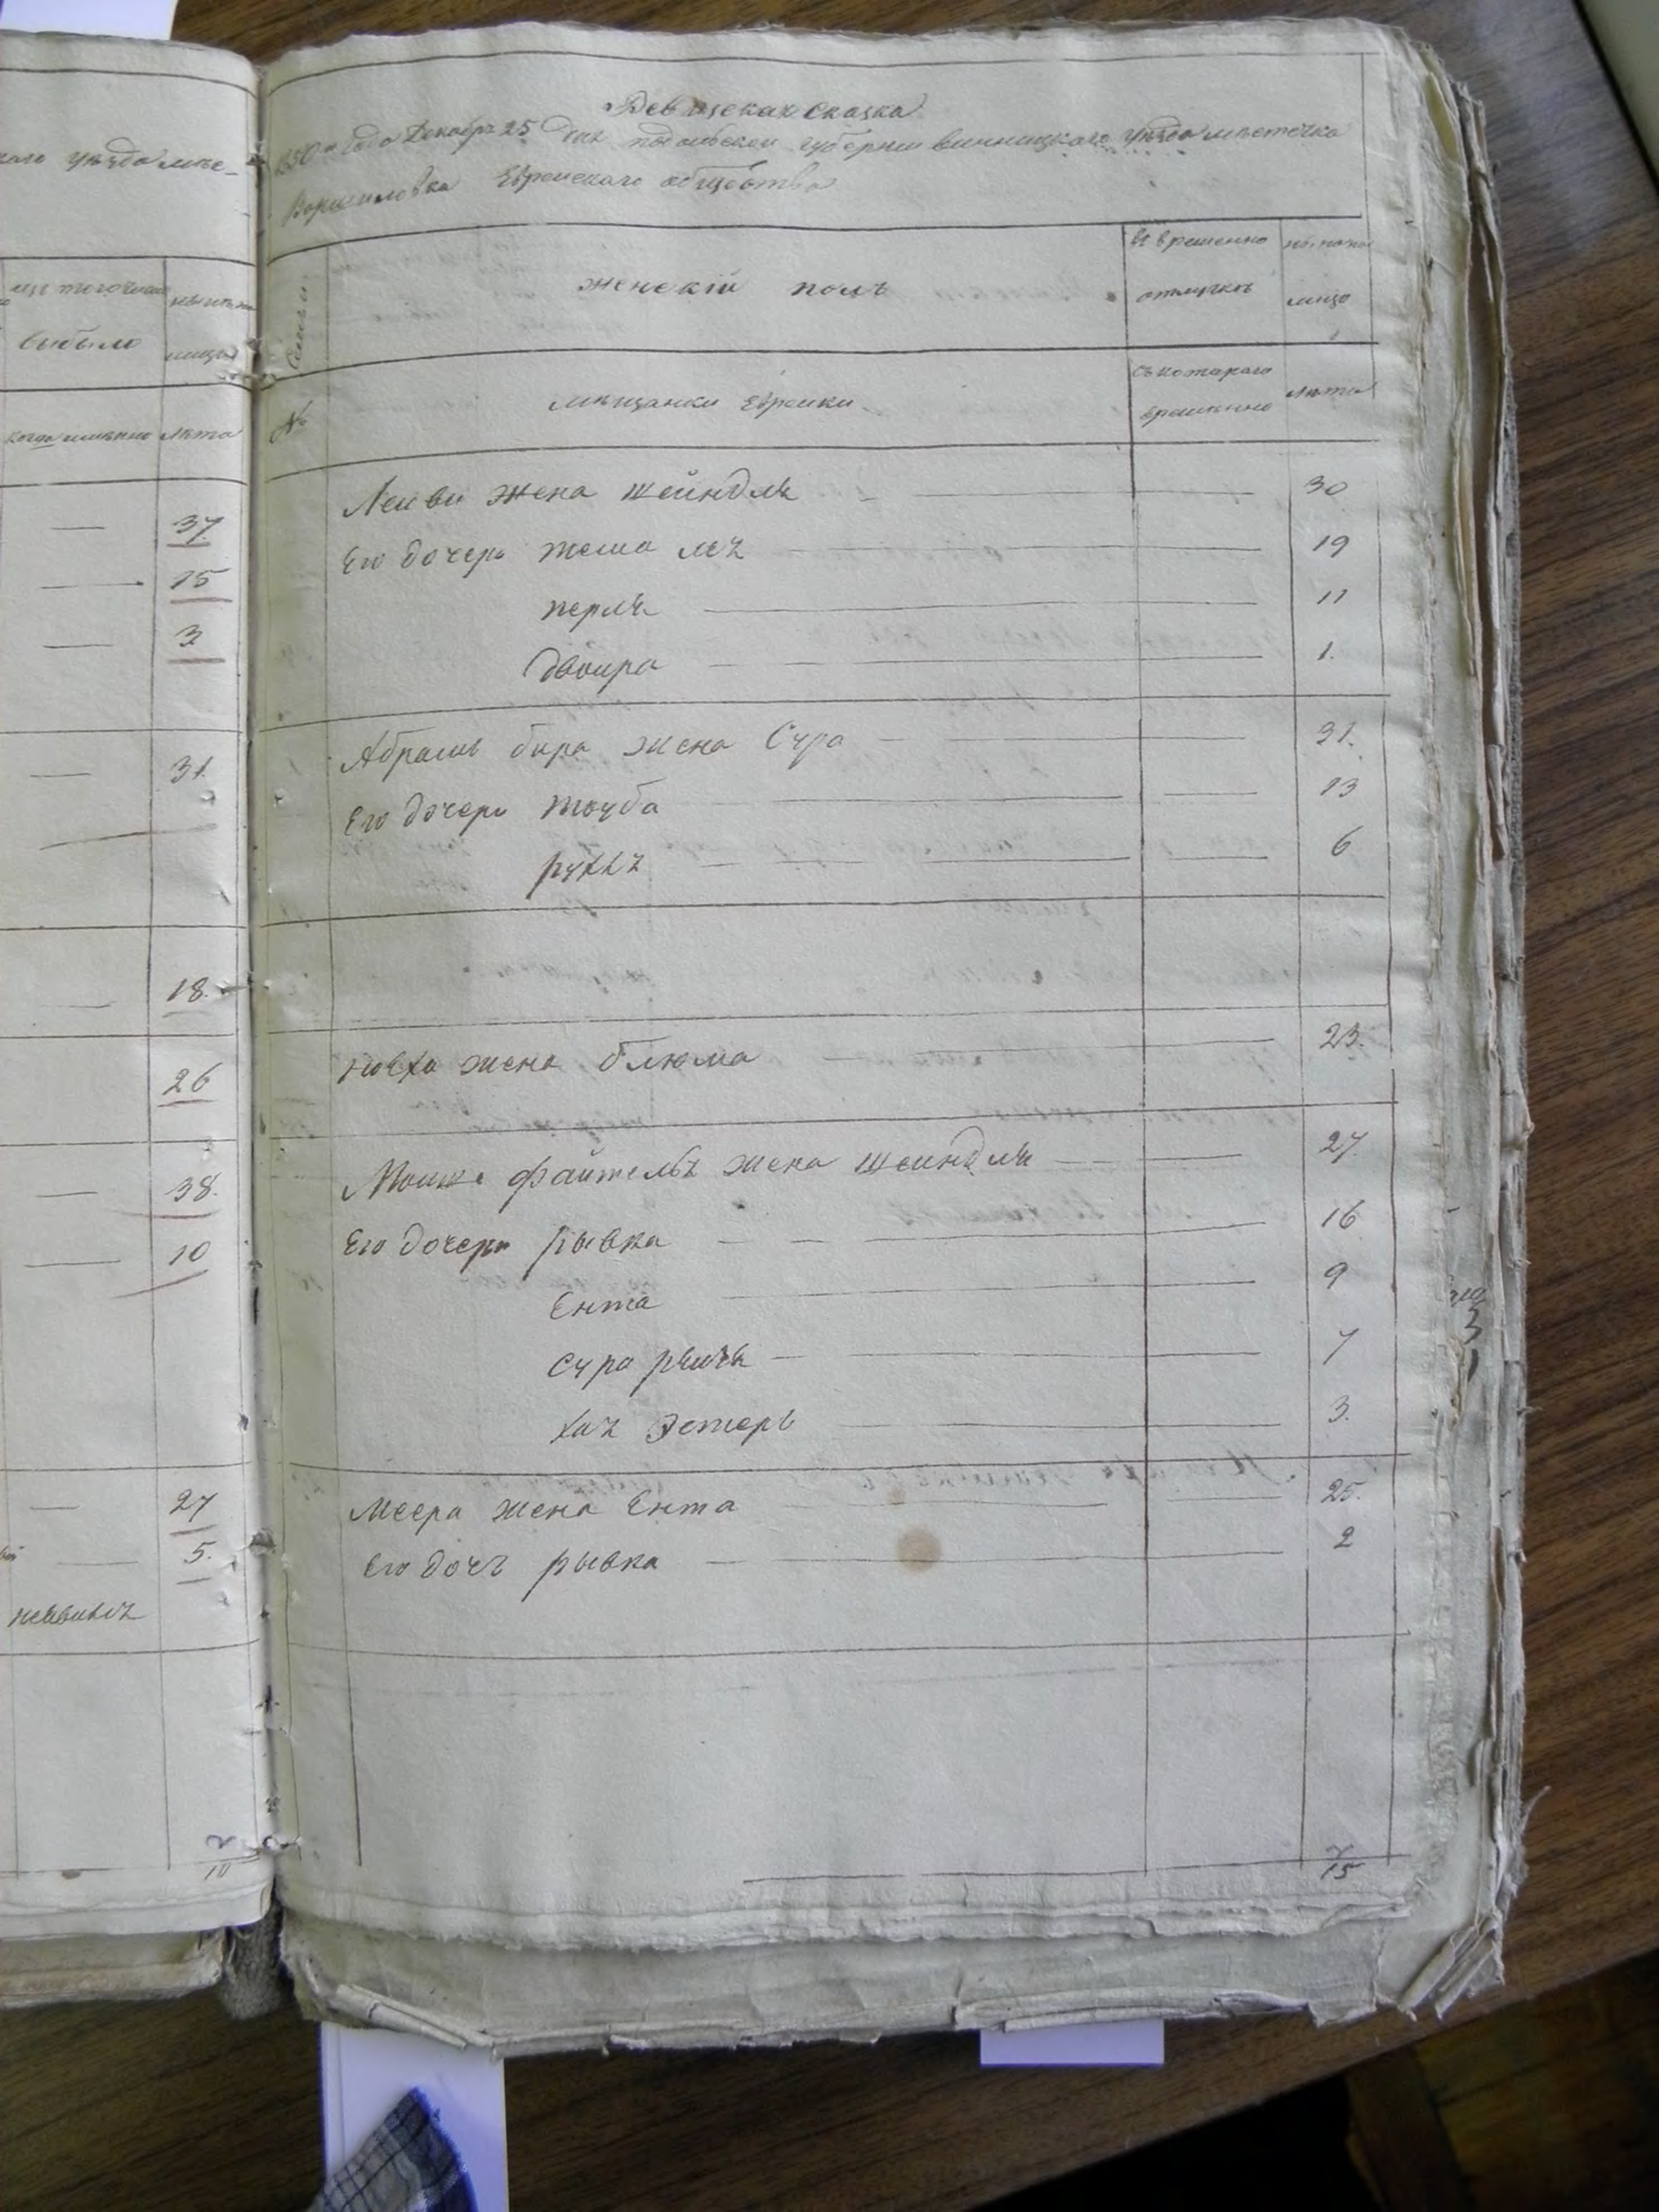 каго уѣзда мѣс-
изъ того числа
нынѣ на
выбыло
лицо
когда именно
лѣта
37
15
3
31
18
26
38
10
27
5
неявился
10
Ревизская сказка
Года Декабря 25 Дня подольской губернии винницкаго уѣзда мѣстечка
Ворошиловка Еврейскаго общества
№
женскій полъ
во временно
отлучкѣ
лицо
мѣщанки Еврейки
съ котораго
времѣнно
лѣта
Лейви жена шейндля 30
Его дочери 19
перля 11
двойра 1.
Абрамъ бира жена Сура 31.
Его дочери 13
рухль 6
жена блюма 23.
Мошке файтель жена шейндля 27
Его дочери рывка 16
Ента 9
сура рейзя 7
хая Эстеръ 3.
Меера жена Ента 25.
Его дочь рывка 2
15